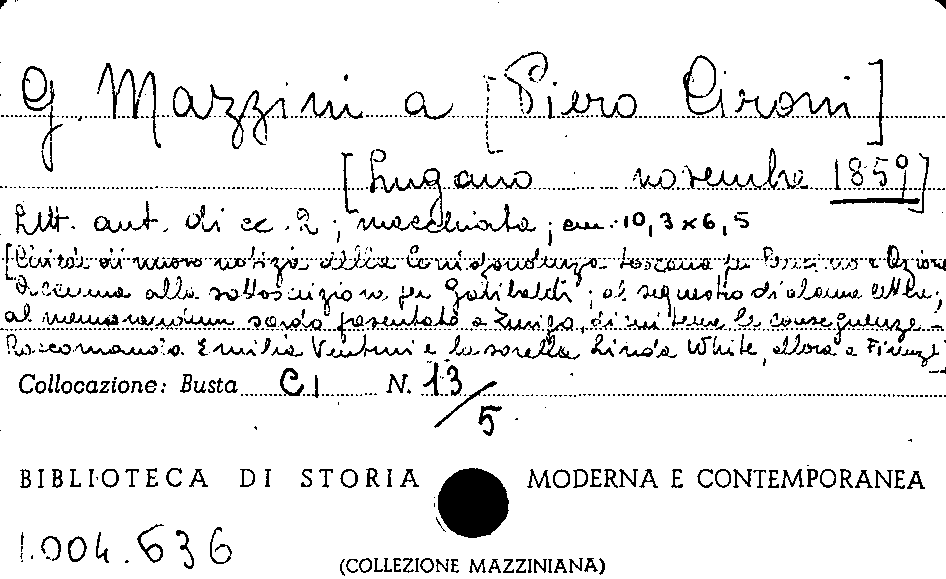 G. Mazzini a [Piero Cironi]
[Lugano novembre 1859]
Lett. aut. di cc. 2; macchiata; cm. 10,3 x 6,5
[Chiede di nuovo notizia della Corrispondenza toscana per Pensiero e Azione
Accenna alla sottoscrizione per Garibaldi; al sequestro di alcune lettere;
al memorandum sardo presentato a Zurigo, di cui teme le conseguenze -
Raccomanda Emilia Venturi e la sorella Linda White, allora a Firenze]
Collocazione: Busta C I N. 13/5
BIBLIOTECA DI STORIA MODERNA E CONTEMPORANEA
1.004.636
(COLLEZIONE MAZZINIANA)